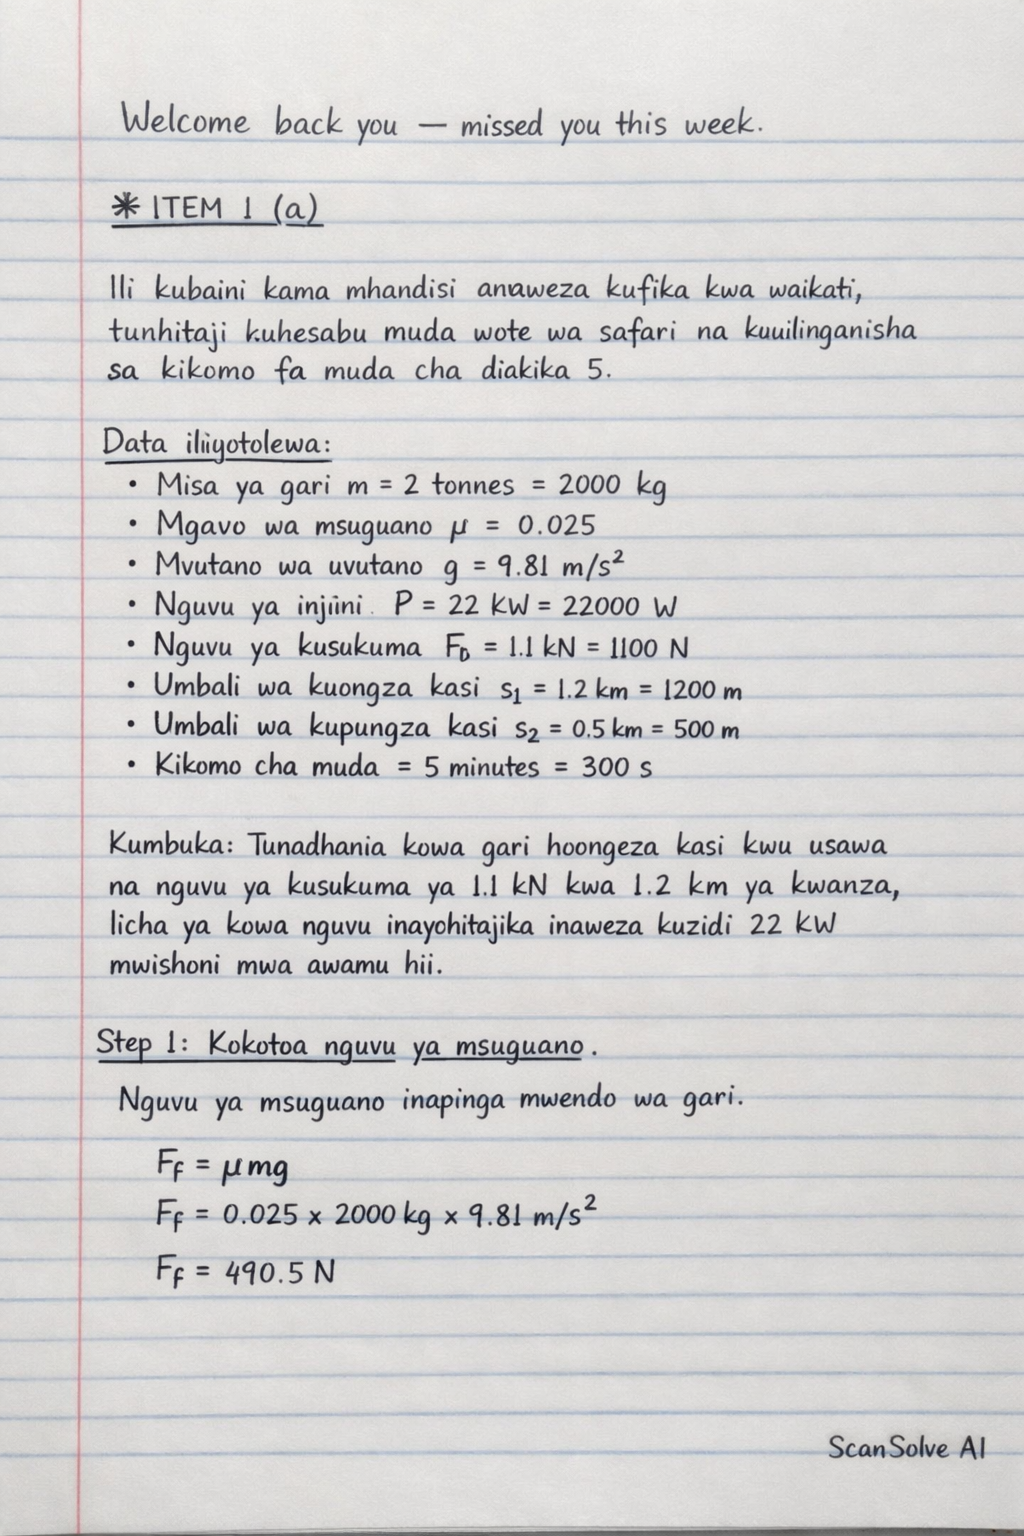 Welcome back you — missed you this week.
* ITEM 1 (a)
Ili kubaini kama mhandisi anaweza kufika kwa waikati,
tunhitaji kuhesabu muda wote wa safari na kuuilinganisha
sa kikomo fa muda cha diakika 5.
Data iliiyotolewa:
• Misa ya gari m = 2 tonnes = 2000 kg
• Mgavo wa msuguano μ = 0.025
• Mvutano wa uvutano g = 9.81 m/s²
• Nguvu ya injiini. P = 22 KW = 22000 W
• Nguvu ya kusukuma F_D = 1.1 kN = 1100 N
• Umbali wa kuongza kasi s₁ = 1.2 km = 1200 m
• Umbali wa kupungza kasi s₂ = 0.5 km = 500 m
• Kikomo cha muda = 5 minutes = 300 s
Kumbuka: Tunadhania kowa gari hoongeza kasi kwu usawa
na nguvu ya kusukuma ya 1.1 kN kwa 1.2 km ya kwanza,
licha ya kowa nguvu inayohitajika inaweza kuzidi 22 KW
mwishoni mwa awamu hii.
Step 1: Kokotoa nguvu ya msuguano.
Nguvu ya msuguano inapinga mwendo wa gari.
F_f = μmg
F_f = 0.025 x 2000 kg x 9.81 m/s²
F_f = 490.5 N
ScanSolve AI